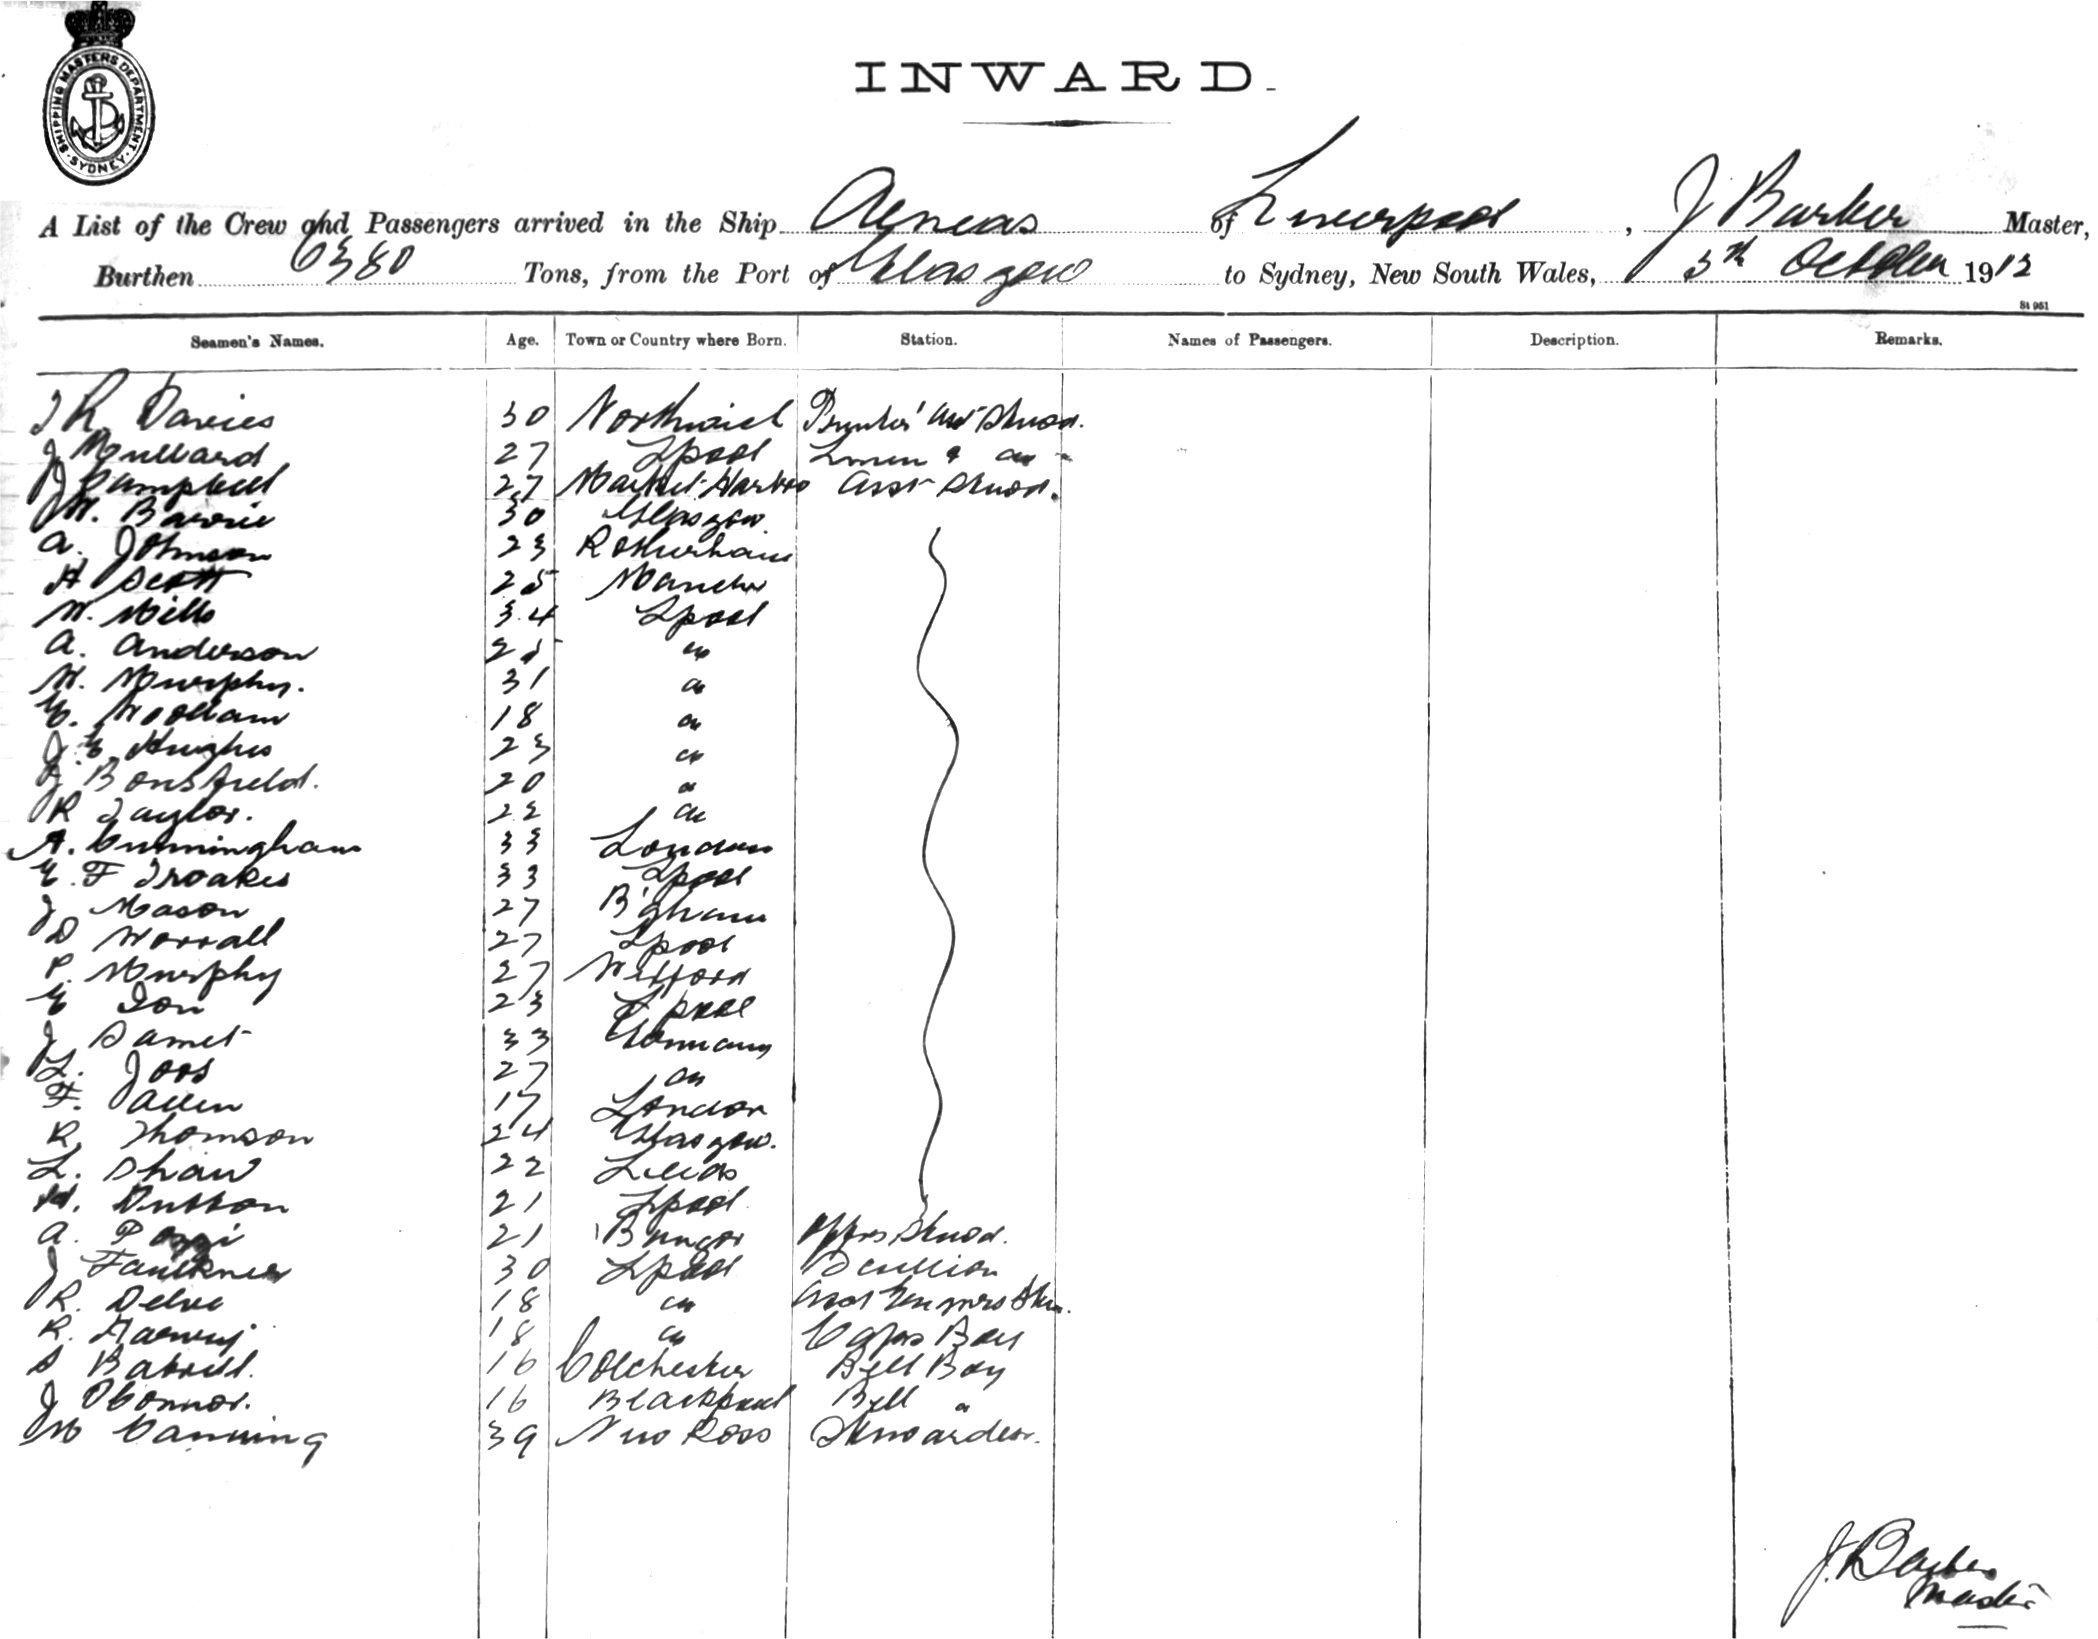 SHIPPING MASTERS DEPARTMENT. SYDNEY
INWARD.
A List of the Crew and Passengers arrived in the Ship Aeneas of Liverpool, J Barker Master,
Burthen 6380 Tons, from the Port of Glasgow to Sydney, New South Wales, 5th October 1912
St 951
Seamen's Names. Age. Town or Country where Born. Station. Names of Passengers. Description. Remarks.
J R Davies 30 Northwich Printer & Asst Stwd.
J Mullard 27 Lpool Linen " "
J Campbell 27 Market Harbro Asst Stwd.
W. Barrie 30 Glasgow
A. Johnson 23 Rotherham
H Scott 25 Manchr
W. Mills 34 Lpool
A. Anderson 25 "
W. Murphy. 31 "
E. Woollam 18 "
J. E. Hughes 23 "
J Bousfield. 20 "
R Taylor. 22 "
A. Cunningham 33 London
E. F Troakes 33 Lpool
J Mason 27 B'gham
D Worrall 27 Lpool
P. Murphy 27 Wexford
E Ion 23 Lpool
J Samet 33 Germany
L. Joos 27 "
F. Allen 17 London
R. Thomson 24 Glasgow.
L. Shaw 22 Leeds
H. Dutton 21 Lpool
A. 21 Bangor Offrs Stwd.
J Faulkner 30 Lpool Scullion
R. Delve 18 " Asst Engnrs Stwd.
R. 18 " Capts Boy
S 16 Colchester Bell Boy
J O'Connor. 16 Blackpool Bell "
M Canning 39 New Ross Stewardess.
J. Barker
Master